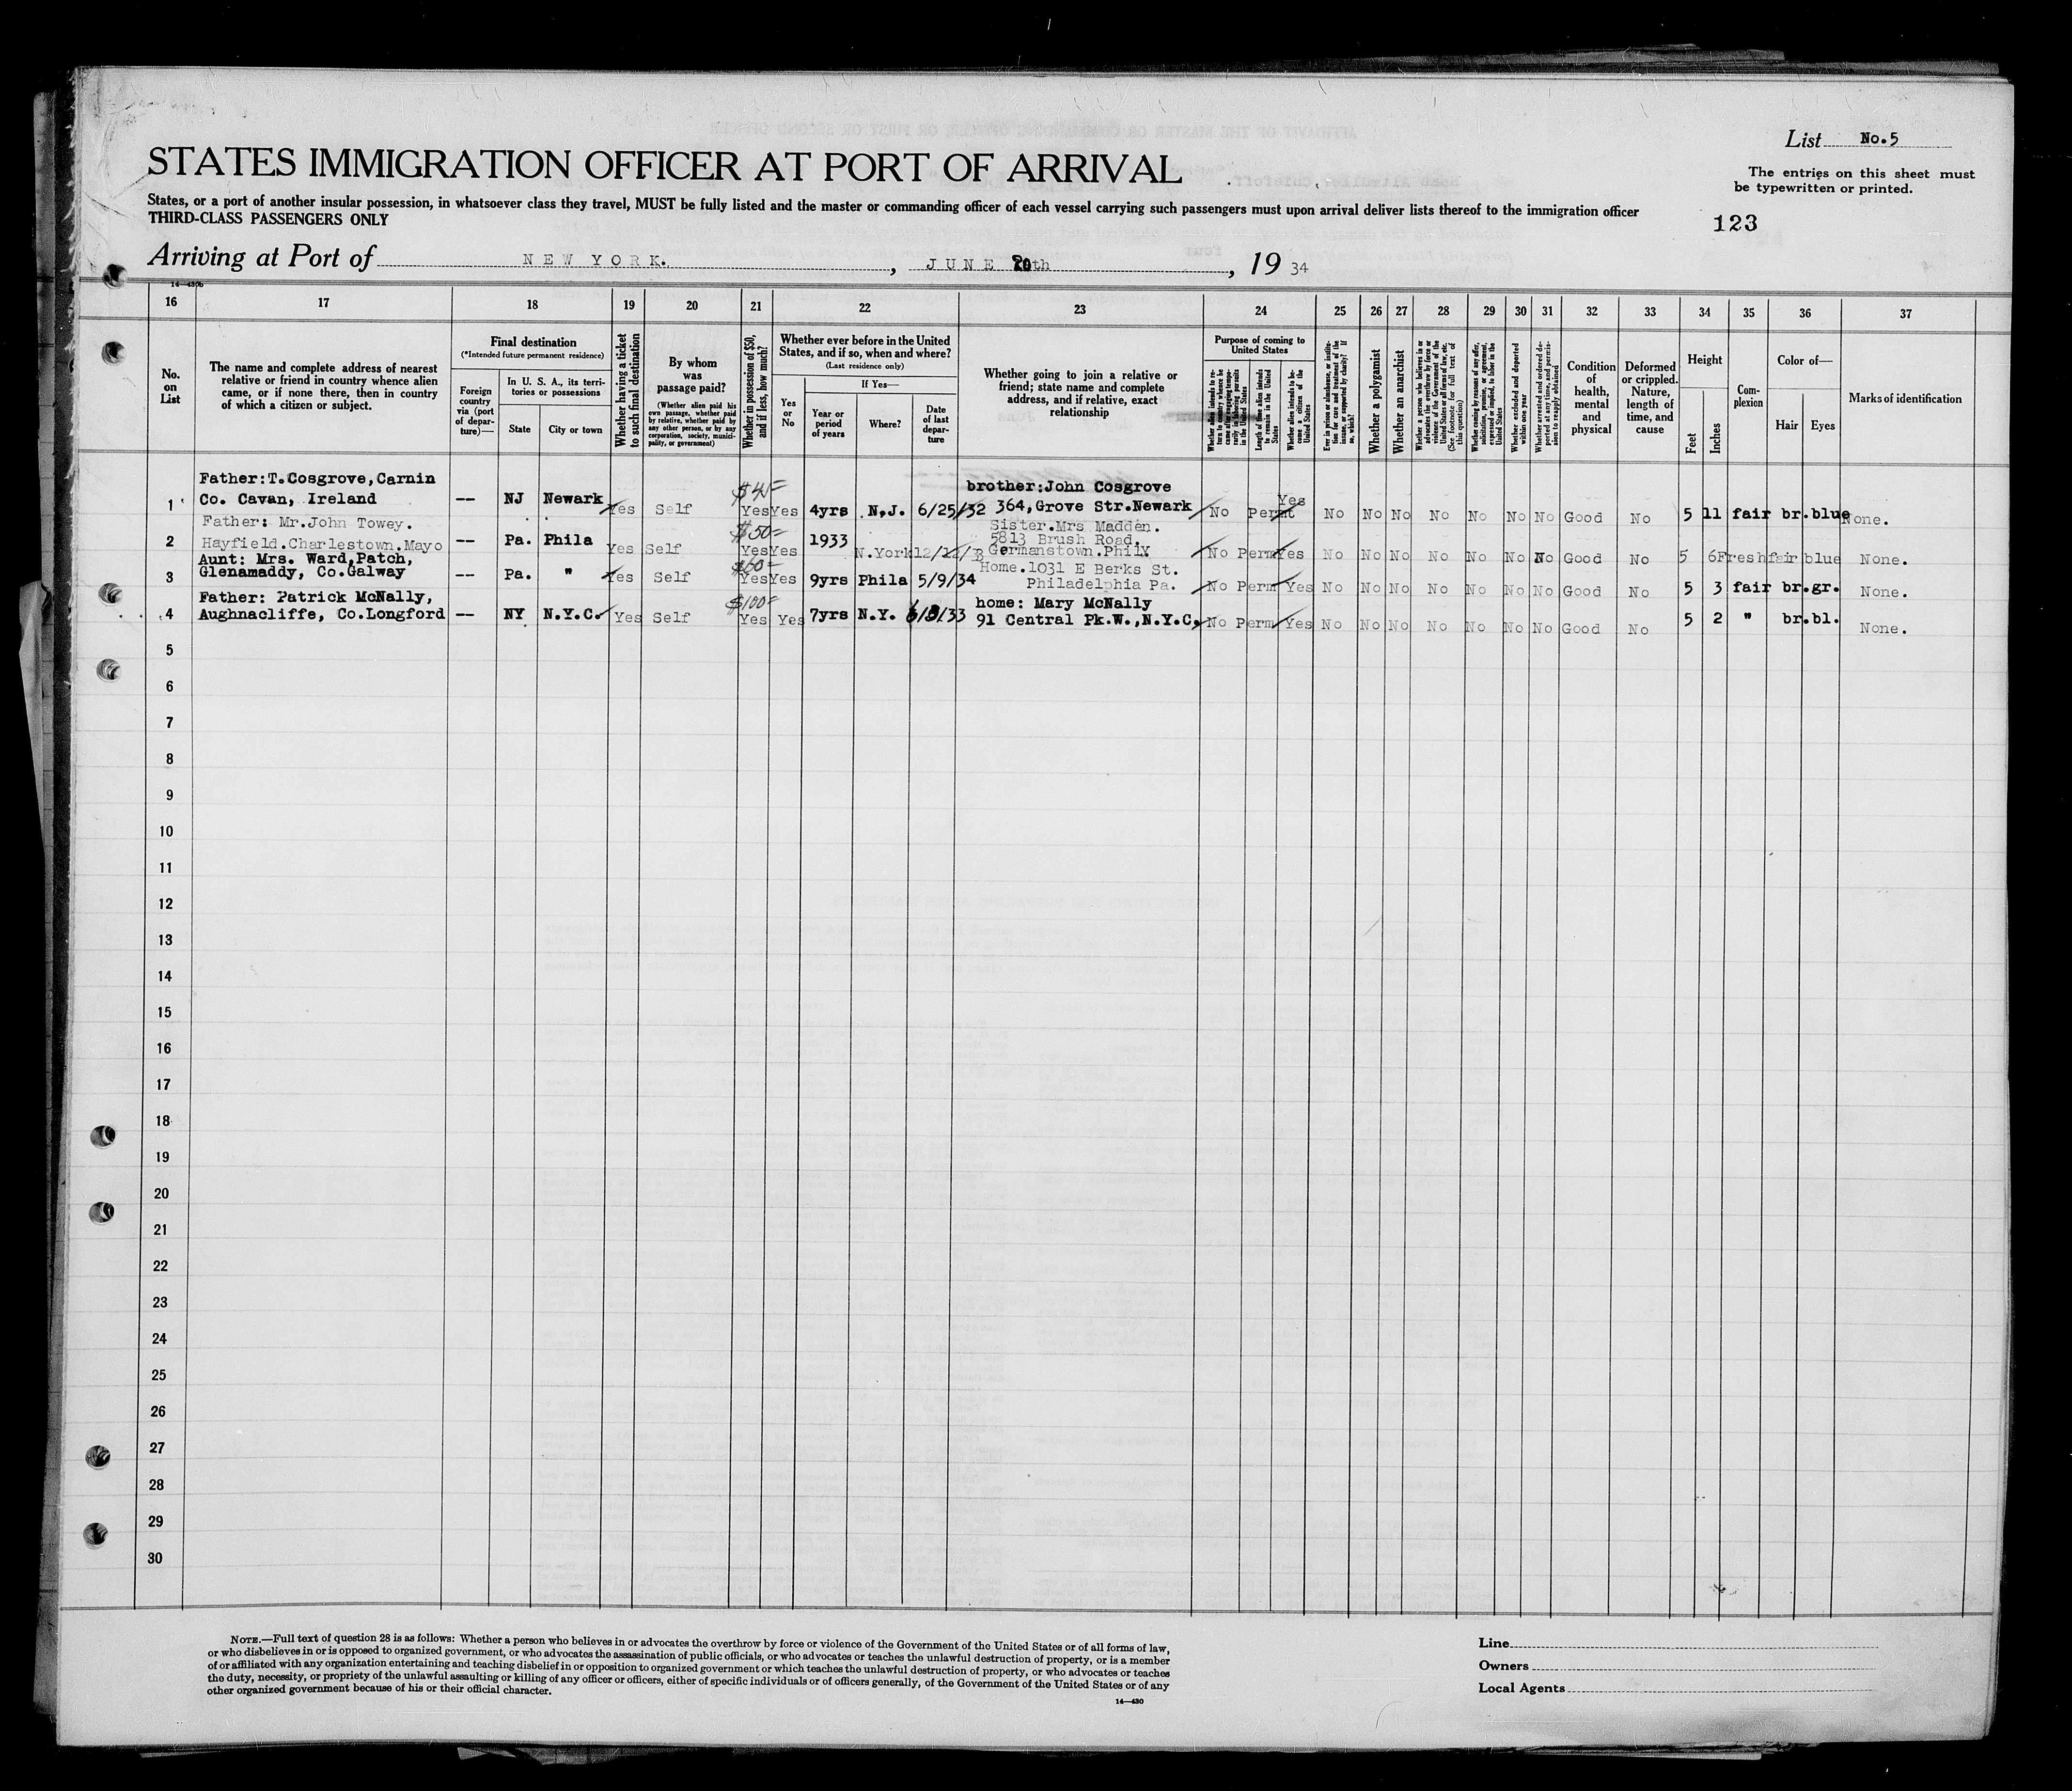 List No.5
STATES IMMIGRATION OFFICER AT PORT OF ARRIVAL
The entries on this sheet must
be typewritten or printed.
States, or a port of another insular possession, in whatsoever class they travel, MUST be fully listed and the master or commanding officer of each vessel carrying such passengers must upon arrival deliver lists thereof to the immigration officer
THIRD-CLASS PASSENGERS ONLY
123
Arriving at Port of NEW YORK. , JUNE th , 19 34
14-430b
16 17 18 19 20 21 22 23 24 25 26 27 28 29 30 31 32 33 34 35 36 37
No.
on
List
The name and complete address of nearest
relative or friend in country whence alien
came, or if none there, then in country
of which a citizen or subject.
Final destination
(*Intended future permanent residence)
Foreign
country
via (port
of depar-
ture)—
In U. S. A., its terri-
tories or possessions
State
City or town
Whether having a ticket
to such final destination
By whom
was
passage paid?
(Whether alien paid his
own passage, whether paid
by relative, whether paid by
any other person, or by any
corporation, society, munici-
pality, or government)
Whether in possession of $50,
and if less, how much?
Whether ever before in the United
States, and if so, when and where?
(Last residence only)
Yes
or
No
If Yes—
Year or
period
of years
Where?
Date
of last
depar-
ture
Whether going to join a relative or
friend; state name and complete
address, and if relative, exact
relationship
Purpose of coming to
United States
Whether alien intends to re-
turn to country whence he
came after engaging tempo-
rarily in laboring pursuits
in the United States
Length of time alien intends
to remain in the United
States
Whether alien intends to be-
come a citizen of the
United States
Ever in prison or almshouse, or institu-
tion for care and treatment of the
insane, or supported by charity? If
so, which?
Whether a polygamist
Whether an anarchist
Whether a person who believes in or
advocates the overthrow by force or
violence of the Government of the
United States or all forms of law, etc.
(See footnote for full text of
this question)
Whether coming by reasons of any offer,
solicitation, promise, or agreement,
expressed or implied, to labor in the
United States
Whether excluded and deported
within one year
Whether arrested and ordered de-
ported at any time, and permis-
sion to reapply obtained
Condition
of
health,
mental
and
physical
Deformed
or crippled.
Nature,
length of
time, and
cause
Height
Feet
Inches
Com-
plexion
Color of—
Hair
Eyes
Marks of identification
Father:T.Cosgrove,Carnin
1 Co. Cavan, Ireland -- NJ Newark Yes Self $45= Yes Yes 4yrs N.J. 6/25/32 brother:John Cosgrove
364,Grove Str.Newark No Permt Yes No No No No No No No Good No 5 11 fair br. blue None.
Father: Mr.John Towey.
2 Hayfield.Charlestown.Mayo -- Pa. Phila Yes Self $50= Yes Yes 1933 N.York Sister.Mrs Madden.
5813 Brush Road.
Germanstown.Phily No Perm Yes No No No No No No No Good No 5 6 Fresh fair blue None.
Aunt: Mrs. Ward,Patch,
3 Glenamaddy, Co.Galway -- Pa. " Yes Self $60= Yes Yes 9yrs Phila 5/9/34 Home.1031 E Berks St.
Philadelphia Pa. No Perm Yes No No No No No No No Good No 5 3 fair br. gr. None.
Father: Patrick McNally,
4 Aughnacliffe, Co.Longford -- NY N.Y.C. Yes Self $100= Yes Yes 7yrs N.Y. home: Mary McNally
91 Central Pk.W.,N.Y.C, No Perm Yes No No No No No No No Good No 5 2 " br. bl. None.
5
6
7
8
9
10
11
12
13
14
15
16
17
18
19
20
21
22
23
24
25
26
27
28
29
30
NOTE.—Full text of question 28 is as follows: Whether a person who believes in or advocates the overthrow by force or violence of the Government of the United States or of all forms of law,
or who disbelieves in or is opposed to organized government, or who advocates the assassination of public officials, or who advocates or teaches the unlawful destruction of property, or is a member
of or affiliated with any organization entertaining and teaching disbelief in or opposition to organized government or which teaches the unlawful destruction of property, or who advocates or teaches
the duty, necessity, or propriety of the unlawful assaulting or killing of any officer or officers, either of specific individuals or of officers generally, of the Government of the United States or of any
other organized government because of his or their official character.
14—430
Line
Owners
Local Agents